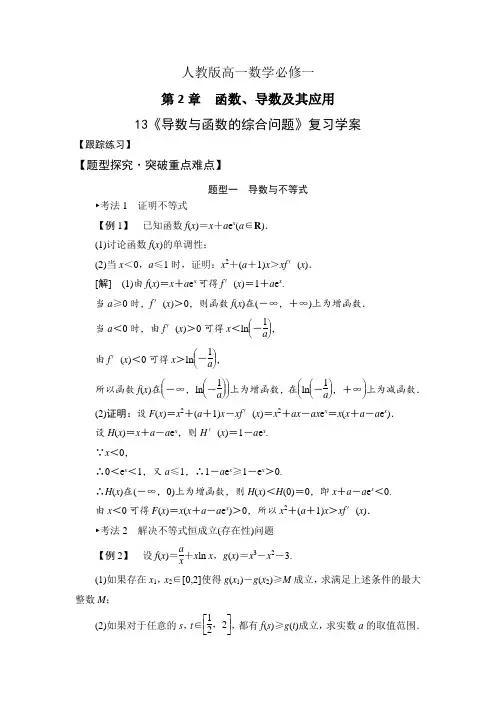 人教版高一数学必修一
第2章　函数、导数及其应用
13《导数与函数的综合问题》复习学案
【跟踪练习】
【题型探究·突破重点难点】
题型一　导数与不等式
►考法1　证明不等式
【例1】　已知函数f(x)=x+aeˣ(a∈R).
(1)讨论函数f(x)的单调性;
(2)当x<0,a≤1时,证明:x²+(a+1)x>xf′(x).
[解]　(1)由f(x)=x+aeˣ可得f′(x)=1+aeˣ.
当a≥0时,f′(x)>0,则函数f(x)在(-∞,+∞)上为增函数.
当a<0时,由f′(x)>0可得x<ln(-1/a),
由f′(x)<0可得x>ln(-1/a),
所以函数f(x)在(-∞,ln(-1/a))上为增函数,在(ln(-1/a),+∞)上为减函数.
(2)证明:设F(x)=x²+(a+1)x-xf′(x)=x²+ax-axeˣ=x(x+a-aeˣ).
设H(x)=x+a-aeˣ,则H′(x)=1-aeˣ.
∵x<0,
∴0<eˣ<1,又a≤1,∴1-aeˣ≥1-eˣ>0.
∴H(x)在(-∞,0)上为增函数,则H(x)<H(0)=0,即x+a-aeˣ<0.
由x<0可得F(x)=x(x+a-aeˣ)>0,所以x²+(a+1)x>xf′(x).
►考法2　解决不等式恒成立(存在性)问题
【例2】　设f(x)=a/x+xln x,g(x)=x³-x²-3.
(1)如果存在x₁,x₂∈[0,2]使得g(x₁)-g(x₂)≥M成立,求满足上述条件的最大
整数M;
(2)如果对于任意的s,t∈[1/2,2],都有f(s)≥g(t)成立,求实数a的取值范围.